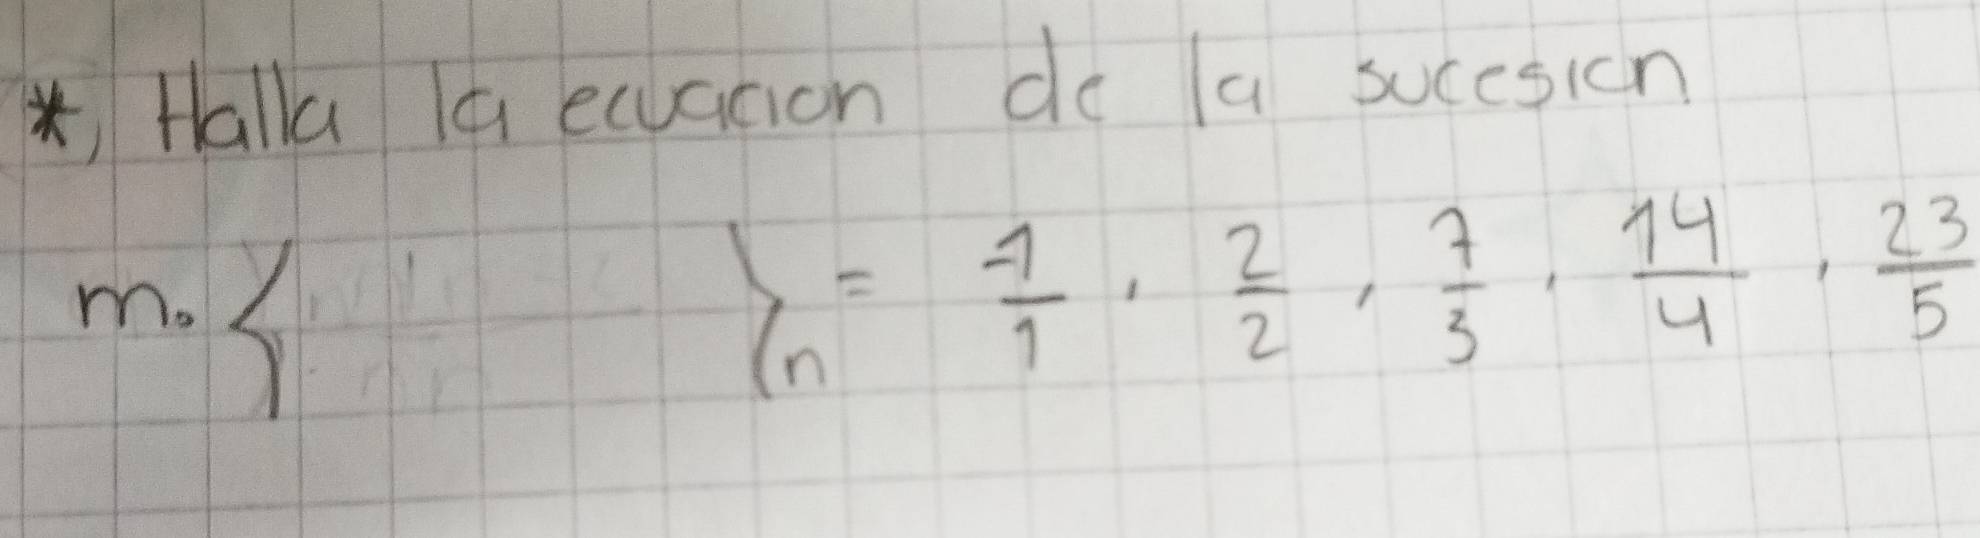 *, Halla la ecuacion de la sucesion
m. { }n = -1/1 , 2/2 , 7/3 , 14/4 , 23/5